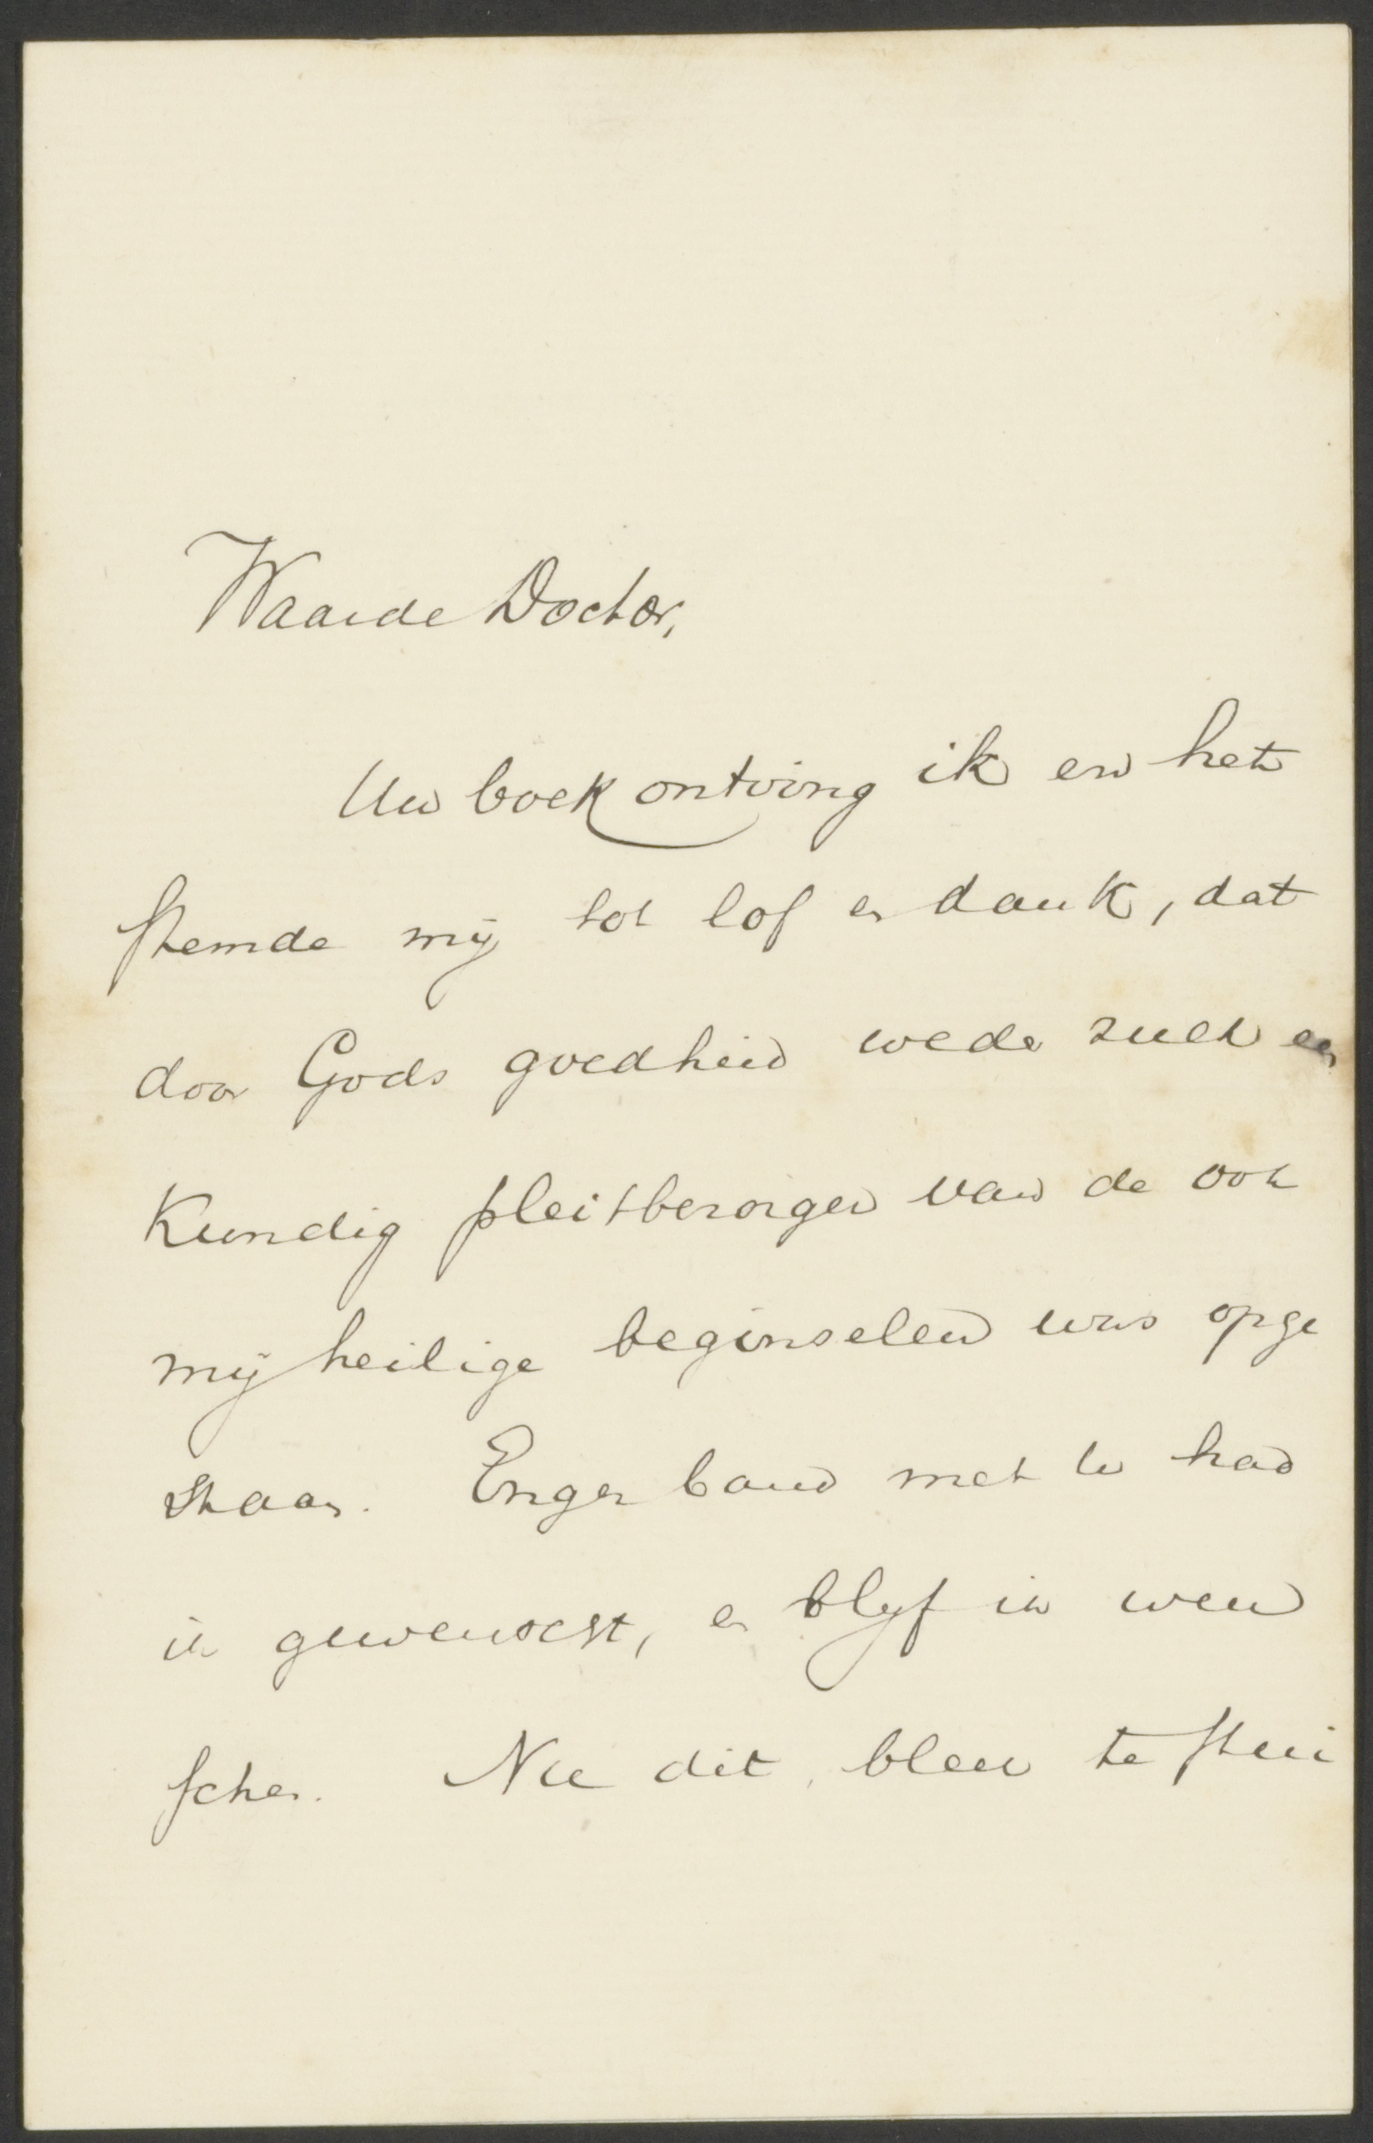 Waarde Doctor,
Uw boek ontving ik en het
stemde mij tot lof en dank, dat
door Gods goedheid weder zulk een
kundig pleitbezorger van de ook
mij heilige beginselen was opge
staan. Enger band met U had
ik gewenscht, en blijf ik wen
schen. Nu dit, bleu te stui